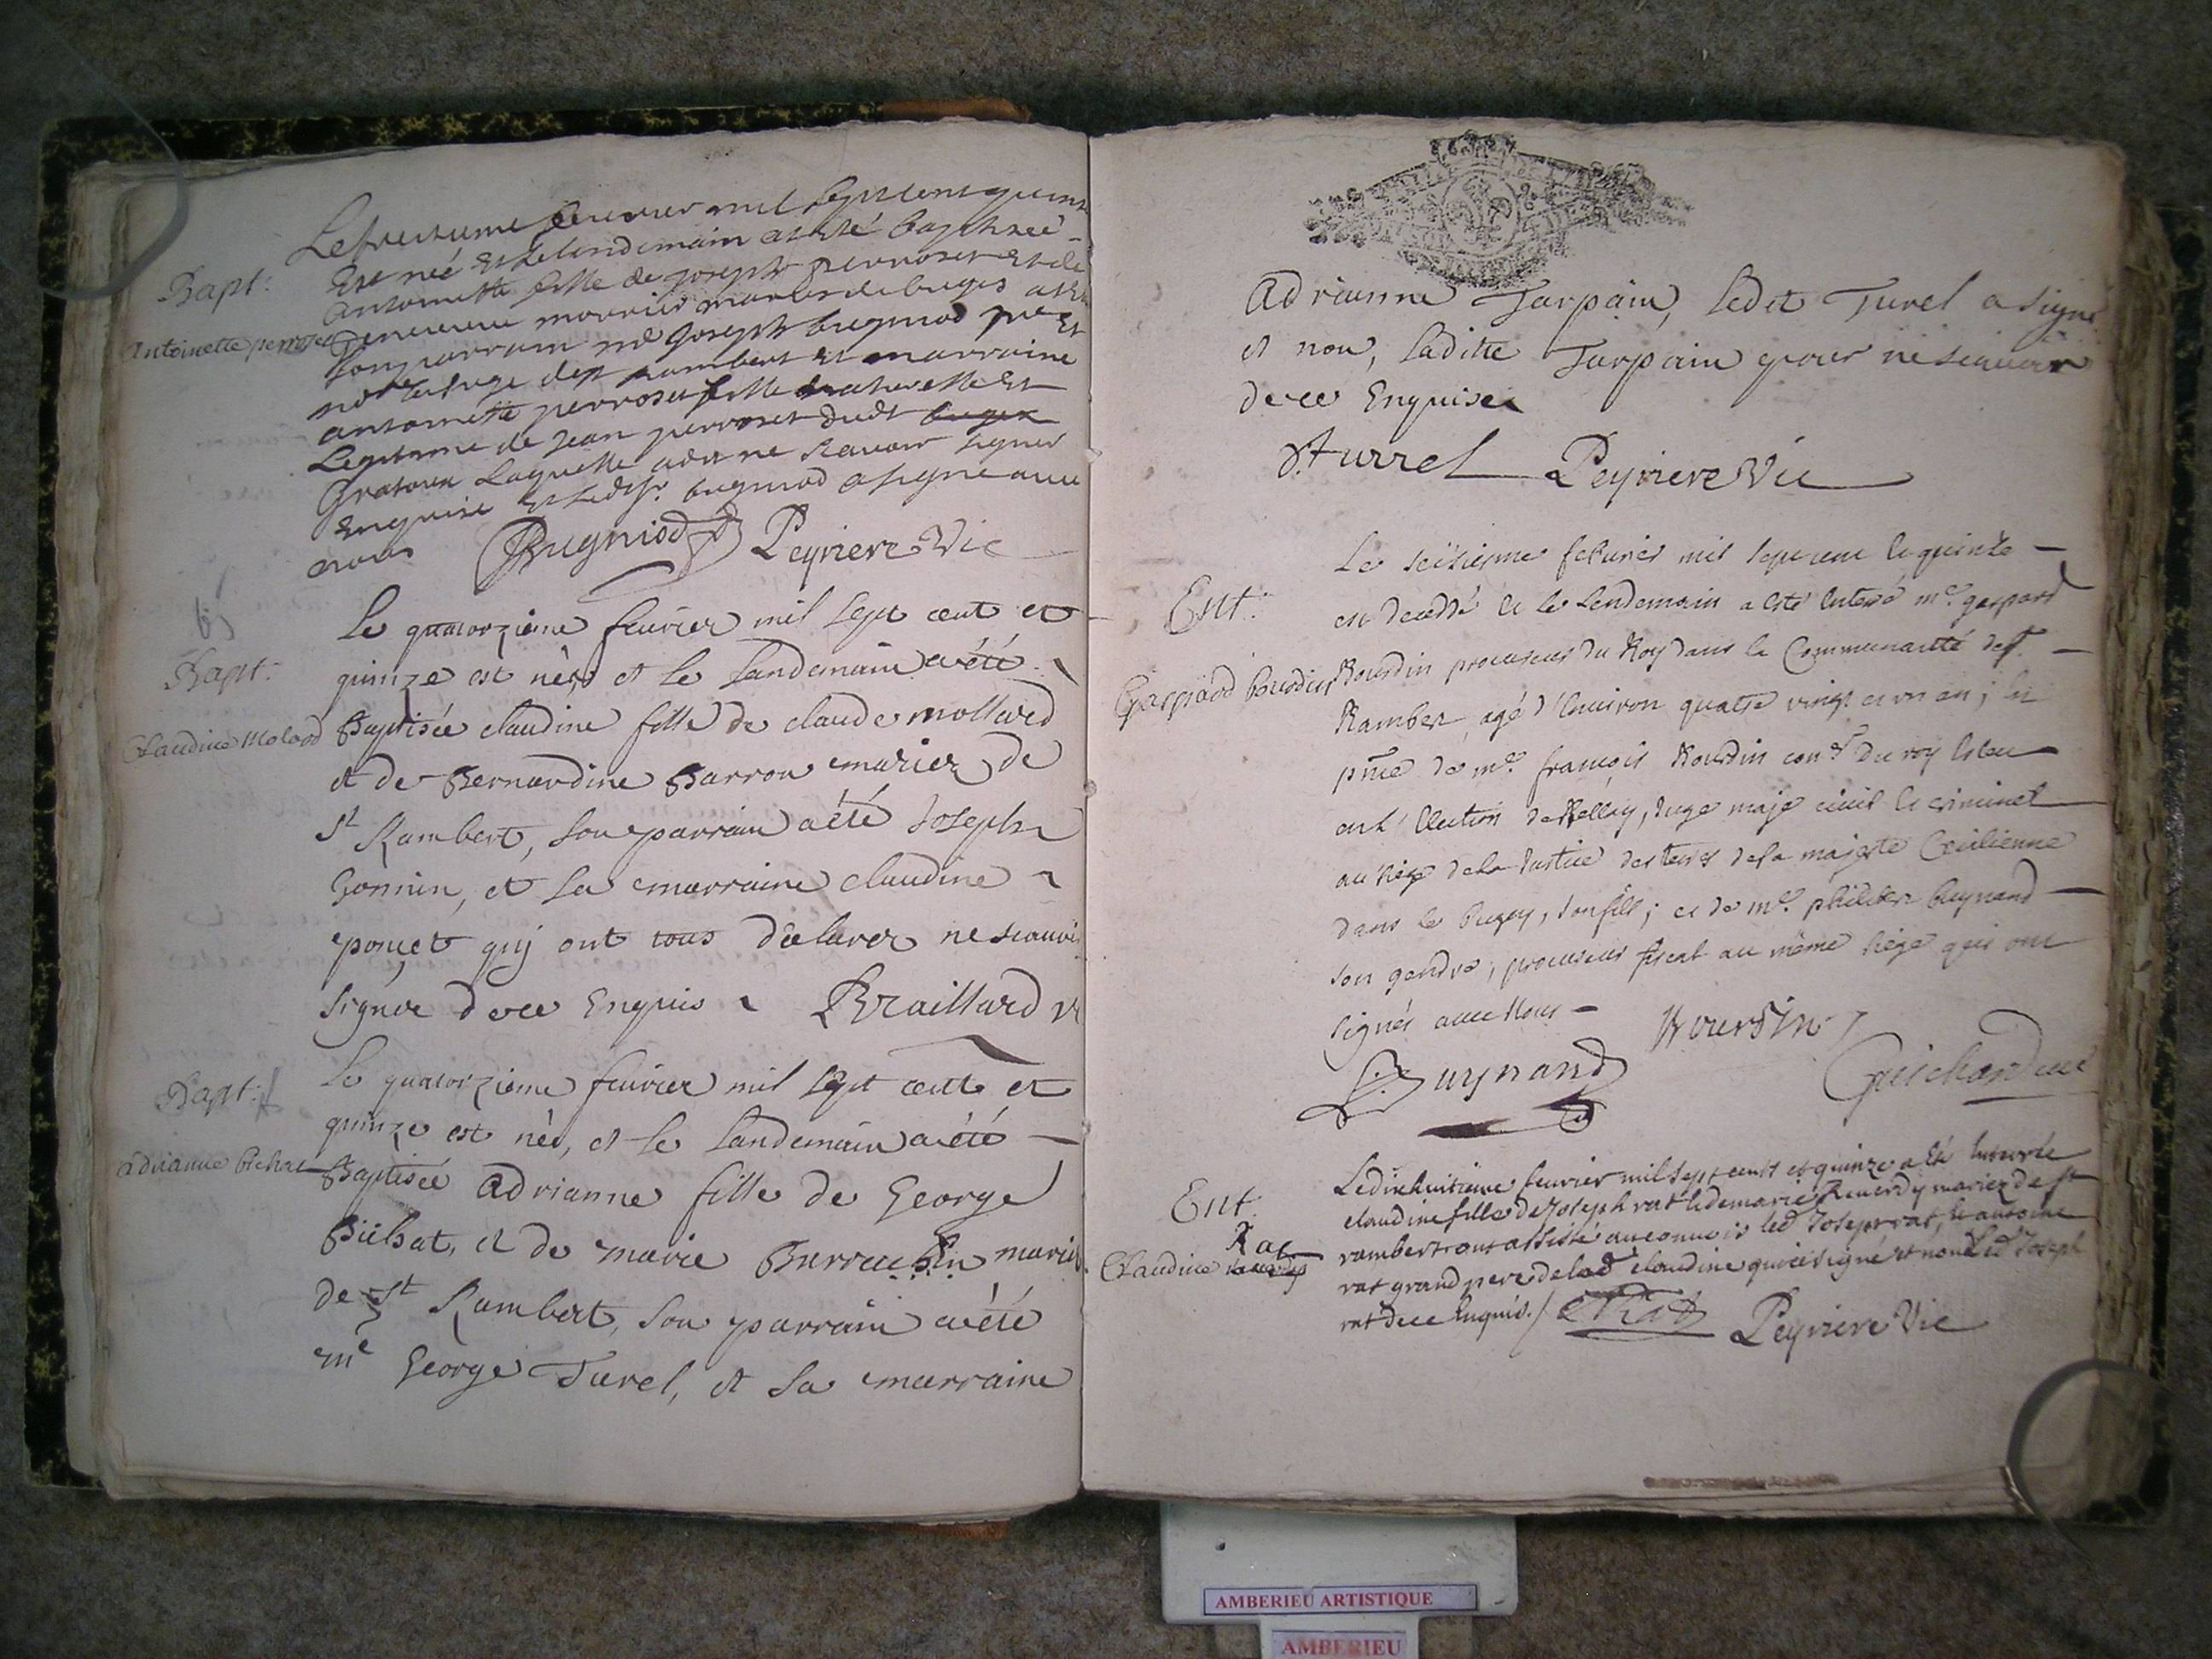 Bapt:
Antoinette perroset
Le treisieme feuvrier mil sept cent quinze
Est née et le lendemain at esté baptisée
antoinette fille de joseph perroset et de
mourier mariés de buges at esté
son parrain me joseph bugniod pre et
not et juge de st rambert et marraine
antoinette perroset fille naturelle et
Legitime de jean perroset dudt buges
Laquelle adit ne scavoir signer
enquise et ledt sr. bugniod a signe avec
nous Bugniod Peyriere Vic
Bapt:
Claudine Molard
Le quatorzième feuvrier mil sept cent et
quinze est née, et le landemain a été
Baptisée claudine fille de claude mollard
et de Bernardine Barron mariez de
St Rambert, son parrain a été Joseph
Gonnin, et sa marraine claudine
ponçet quj ont tous déclarez ne scauoir
signer de ce Enquis Braillard v
Bapt:
adrianne bichat
Le quatorzième feuvrier mil sept cent et
quinze est née, et le landemain a été
Baptisée adrianne fille de George
Bichat, et de marie mariés
de St Rambert, son parrain a été
me George Turel, et sa marraine
adrianne Tarpain, ledit Turel a signé
et non, laditte Tarpain pour ne scauoir
de ce Enquise
Turrel Peyriere Vic
Ent:
Gaspard bourdin
Le seizieme feburier mil sept cent et quinze
est decedé et le lendemain a esté enterré me. gaspard
Bourdin procureur du Roy dans la Communauté de St.
Rambert, agé d'enuiron quatre vingt et un an; en
pnce de me. françois Bourdin conser du roy esleu
en l'election de Belley, Juge maje ciuil et criminel
au siege de la Justice des terres de sa majesté Cicilienne
dans le bugey, son fils; et de me. philibert buynand
son gendre, procureur fiscal au même siège qui ont
signés auec Nous
Bourdin
Buynand
Guichard curé
Ent.
Rat
Claudine
Le dixhuitieme feurier mil sept cents et quinze a été enterrée
claudine fille de Joseph rat et de marie Reuerdy mariez de st
rambert ont assisté au conuois led Joseph rat, et antoine
rat grand pere de lad claudine qui a signé et non led Joseph
rat de ce Enquis./ Rat Peyriere Vic
AMBERIEU ARTISTIQUE
AMBERIEU